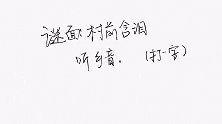 谜面:村前含泪
听乡音。(打一字)